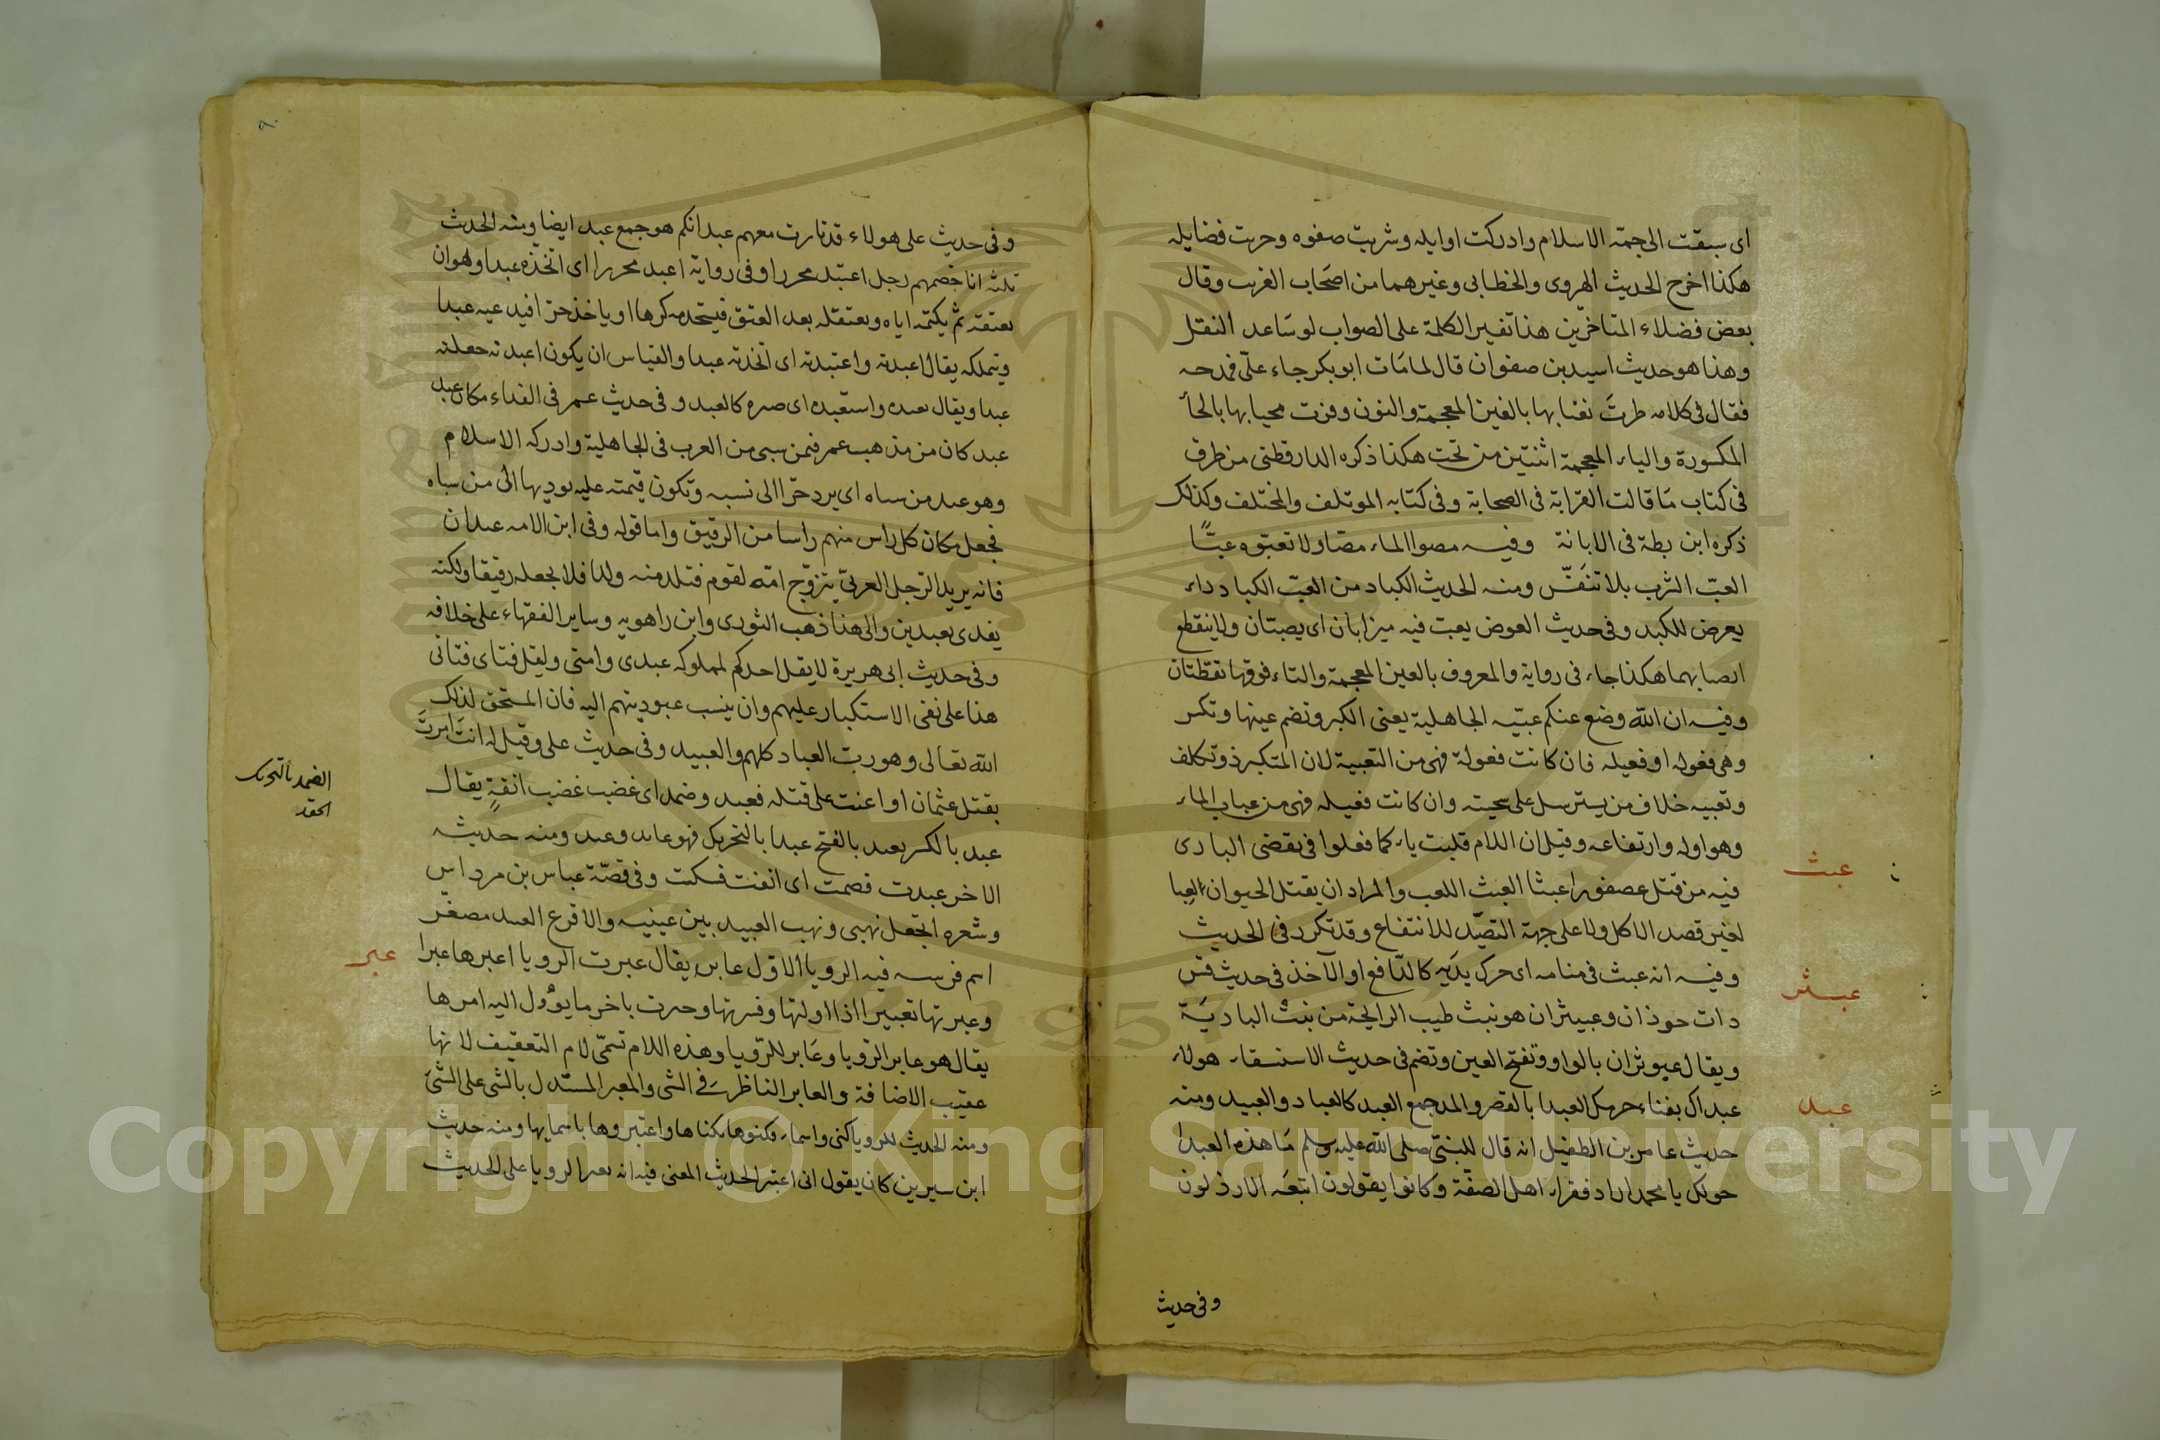 اى سبقت الى جمة الاسلام وادركت اوايله وشربت صفوه وحويت فضايله
هكذا اخرج الحديث الهروى والخطابى وغيرهما من اصحاب الغريب وقال
بعض فضلاء المتاخرين هذا تفسير الكلمة على الصواب لو ساعد النقل
وهذا هو حديث اسيد بن صفوان قال لما مات ابو بكر جاء على فمدحه
فقال فى كلامه طرت بغنابها بالغين المعجمة والنون وفزت بحيابها بالحاء
المكسورة والياء المعجمة اثنتين من تحت هكذا ذكره الدارقطنى من طرق
فى كتاب ما قالت القرابة فى الصحابة وفى كتابه الموتلف والمختلف وكذلك
ذكره ابن بطة فى الابانة وفيه مصوا الماء مصا ولا تعبوه عبا
العب الشرب بلا تنفس ومنه الحديث الكباد من العب الكباد داء
يعرض للكبد وفى حديث الحوض يعب فيه ميزابان اى يصبان ولا ينقطع
انصبابهما هكذا جاء فى رواية والمعروف بالغين المعجمة والتاء فوقها نقطتان
وفيه ان الله وضع عنكم عبية الجاهلية يعنى الكبر وتضم عينها وتكسر
وهى فعوله او فعيله فان كانت فعولة فهى من التعبية لان المتكبر ذو تكلف
وتعبيه خلاف من يسترسل على سجيته وان كانت فعيله فهى من عباب الماء
وهو اوله وارتفاعه وقيل ان اللام قلبت ياء كما فعلوا فى تقضى البازى
عبث
فيه من قتل عصفورا عبثا العبث اللعب والمراد ان يقتل الحيوان لعبا
لغير قصد الاكل ولا على جهة التصيد للانتفاع وقد تكرر فى الحديث
وفيه انه عبث فى منامه اى حرك يديه كالدافع او الآخذ فى حديث قس
عبثر
ذات حوذان وعبيثران هو نبت طيب الرايحة من نبت البادية
ويقال عبوثران بالواو وتفتح العين وتضم فى حديث الاستسقاء هولاء
عبد
عبداك بفناء حرمك العبدا بالقصر والمد جمع العبد كالعباد والعبيد ومنه
حديث عامر بن الطفيل انه قال للنبى صلى الله عليه وسلم ما هذه العبدا
حولك يا محمد اراد فقراء اهل الصفة وكانوا يقولون اتبعه الارذلون
وفى حديث
وفى حديث على هولاء قد ثارت معهم عبدانكم هو جمع عبد ايضا ومنه الحديث
ثلثة انا خصمهم رجل اعتبد محررا وفى رواية اعبد محررا اى اتخذه عبدا وهو ان
يعتقه ثم يكتمه اياه ويعتقله بعد العتق فيستخدمه كرها او ياخذ حرا فيدعيه عبدا
ويتملكه يقال اعبدته واعتبدته اى اتخذته عبدا والقياس ان يكون اعبدته جعلته
عبدا ويقال تعبده واستعبده اى صيره كالعبد وفى حديث عمر فى الفداء مكان عبد
عبد كان من مذهب عمر فيمن سبى من العرب فى الجاهلية وادركه الاسلام
وهو عند من سباه اى يرد حرا الى نسبه وتكون قيمته عليه يوديها الى من سباه
فجعل مكان كل راس منهم راسا من الرقيق واما قوله وفى ابن الامه عبدان
فانه يريد الرجل العربى يتزوج امة لقوم فتلد منه ولدا فلا يجعله رقيقا ولكنه
يفدى بعبدين والى هذا ذهب الثورى وابن راهويه وساير الفقهاء على خلافه
وفى حديث ابى هريرة لا يقل احدكم لمملوكه عبدى وامتى وليقل فتاى فتاتى
هذا على نفى الاستكبار عليهم وان ينسب عبوديتهم اليه فان المستحق لذلك
الله تعالى وهو رب العباد كلهم والعبيد وفى حديث على وقيل له انت امرت
بقتل عثمان او اعنت على قتله فعبد وضمد اى غضب غضب انفة يقال
الضمد بالتحريك
الحقد
عبد بالكسر يعبد بالفتح عبدا بالتحريك فهو عابد وعبد ومنه حديثه
الاخر عبدت فصمت اى انفت فسكت وفى قصة عباس بن مرداس
وشعره اتجعل نهبى ونهب العبيد بين عيينه والاقرع العبيد مصغر
عبر
اسم فرسه فيه الرويا لاول عابر يقال عبرت الرويا اعبرها عبرا
وعبرتها تعبيرا اذا اولتها وفسرتها وخبرت باخر ما يؤول اليه امرها
يقال هو عابر الرويا وعابر للرويا وهذه اللام تسمى لام التعقيب لانها
عقيب الاضافة والعابر الناظر فى الشى والمعبر المستدل بالشى على الشى
ومنه الحديث للرويا كنى واسماء فكنوها بكناها واعتبروها باسمايها ومنه حديث
ابن سيرين كان يقول انى اعتبر الحديث المعنى فيه انه يعبر الرويا على الحديث
Copyright © King Saud University
1957